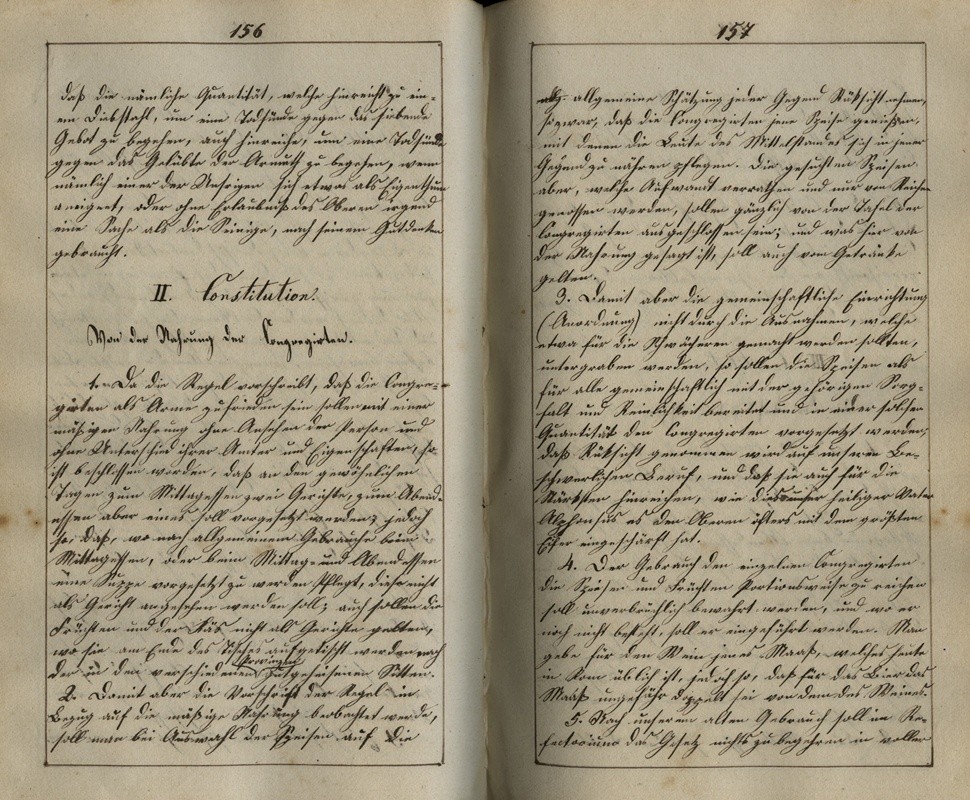 156
daß die nämliche Quantität, welche hinreicht zu ein-
em Diebstahl, um eine Todsünde gegen das siebente
Gebot zu begehen, auch hinreiche, um eine Todsünde
gegen das Gelübte der Armuth zu begehen, wenn
nämlich einer der Unsrigen sich etwas als Eigenthum
aneignet, oder ohne Erlaubniß des Oberen irgend
eine Sache als die Seinige, nach seinem Gutdenken
gebraucht.
II. Constitution.
Von der Nahrung der Congregirten.
1. Da die Regel vorschreibt, daß die Congre-
girten als Arme zufrieden sein sollen mit einer
mäßigen Nahrung ohne Ansehen der Person und
ohne Unterschied ihrer Ämter und Eigenschaften, so
ist beschlossen worden, daß an den gewöhnlichen
Tagen zum Mittagessen zwei Gerichte, zum Abend-
essen aber eines soll vorgesetzt werden; jedoch
so, daß, wo nach allgemeinem Gebrauche beim
Mittagessen, oder beim Mittag- und Abendessen
eine Suppe vorgesetzt zu werden pflegt, diese nicht
als Gericht angesehen werden soll; auch sollen die
Früchten und der Käs nicht als Gerichte gelten,
wo sie am Ende des Tisches aufgetischt werden nach
den in den verschiedenen Provinzen gutgeheisenen Sitten.
2. Damit aber die Vorschrift der Regel in
Bezug auf die mäßige Nahrung beobachtet werde,
soll man bei Auswahl der Speisen auf die
157
allgemeine Schätzung jeder Gegend Rüksicht nehmen,
so zwar, daß die Congregirten jene Speise genießen,
mit denen die Leute des Mittelstandes sich in jener
Gegend zu nähren pflegen. Die gesuchten Speisen
aber, welche Aufwand verrathen und nur von Reichen
genossen werden, sollen gänzlich von der Tafel der
Congregirten ausgeschlossen sein; und was hier von
der Nahrung gesagt ist, soll auch vom Getränke
gelten.
3. Damit aber die gemeinschaftliche Einrichtung
(Anordnung) nicht durch die Ausnahmen, welche
etwa für die Schwächeren gemacht werden sollten,
untergraben werden, so sollen die Speisen als
für alle gemeinschaftlich mit der gehörigen Sorg-
falt und Reinlichkeit bereitet und in einer solchen
Quantität den Congregirten vorgesetzt werden;
daß Rüksicht genommen wird auf unseren Be-
schwerlichen Beruf, und daß sie auch für die
Stärksten hinreichen, wie dies unser heiliger Vater
Alphonsus es den Oberen öfters mit dem größten
Eifer eingeschärft hat.
4. Der Gebrauch den einzelnen Congregirten
die Speisen und Früchten Portionsweise zu reichen
soll unverbrüchlich bewahrt werden, und wo er
noch nicht besteht, soll er eingeführt werden. Man
gebe für den Wein jenes Maaß, welches heute
in Rom üblich ist, jedoch so, daß für das Bier das
Maaß ungefähr doppelt sei von dem des Weines.
5. Nach unserem alten Gebrauch soll im Re-
fectorium das Gesetz nichts zu begehren in voller